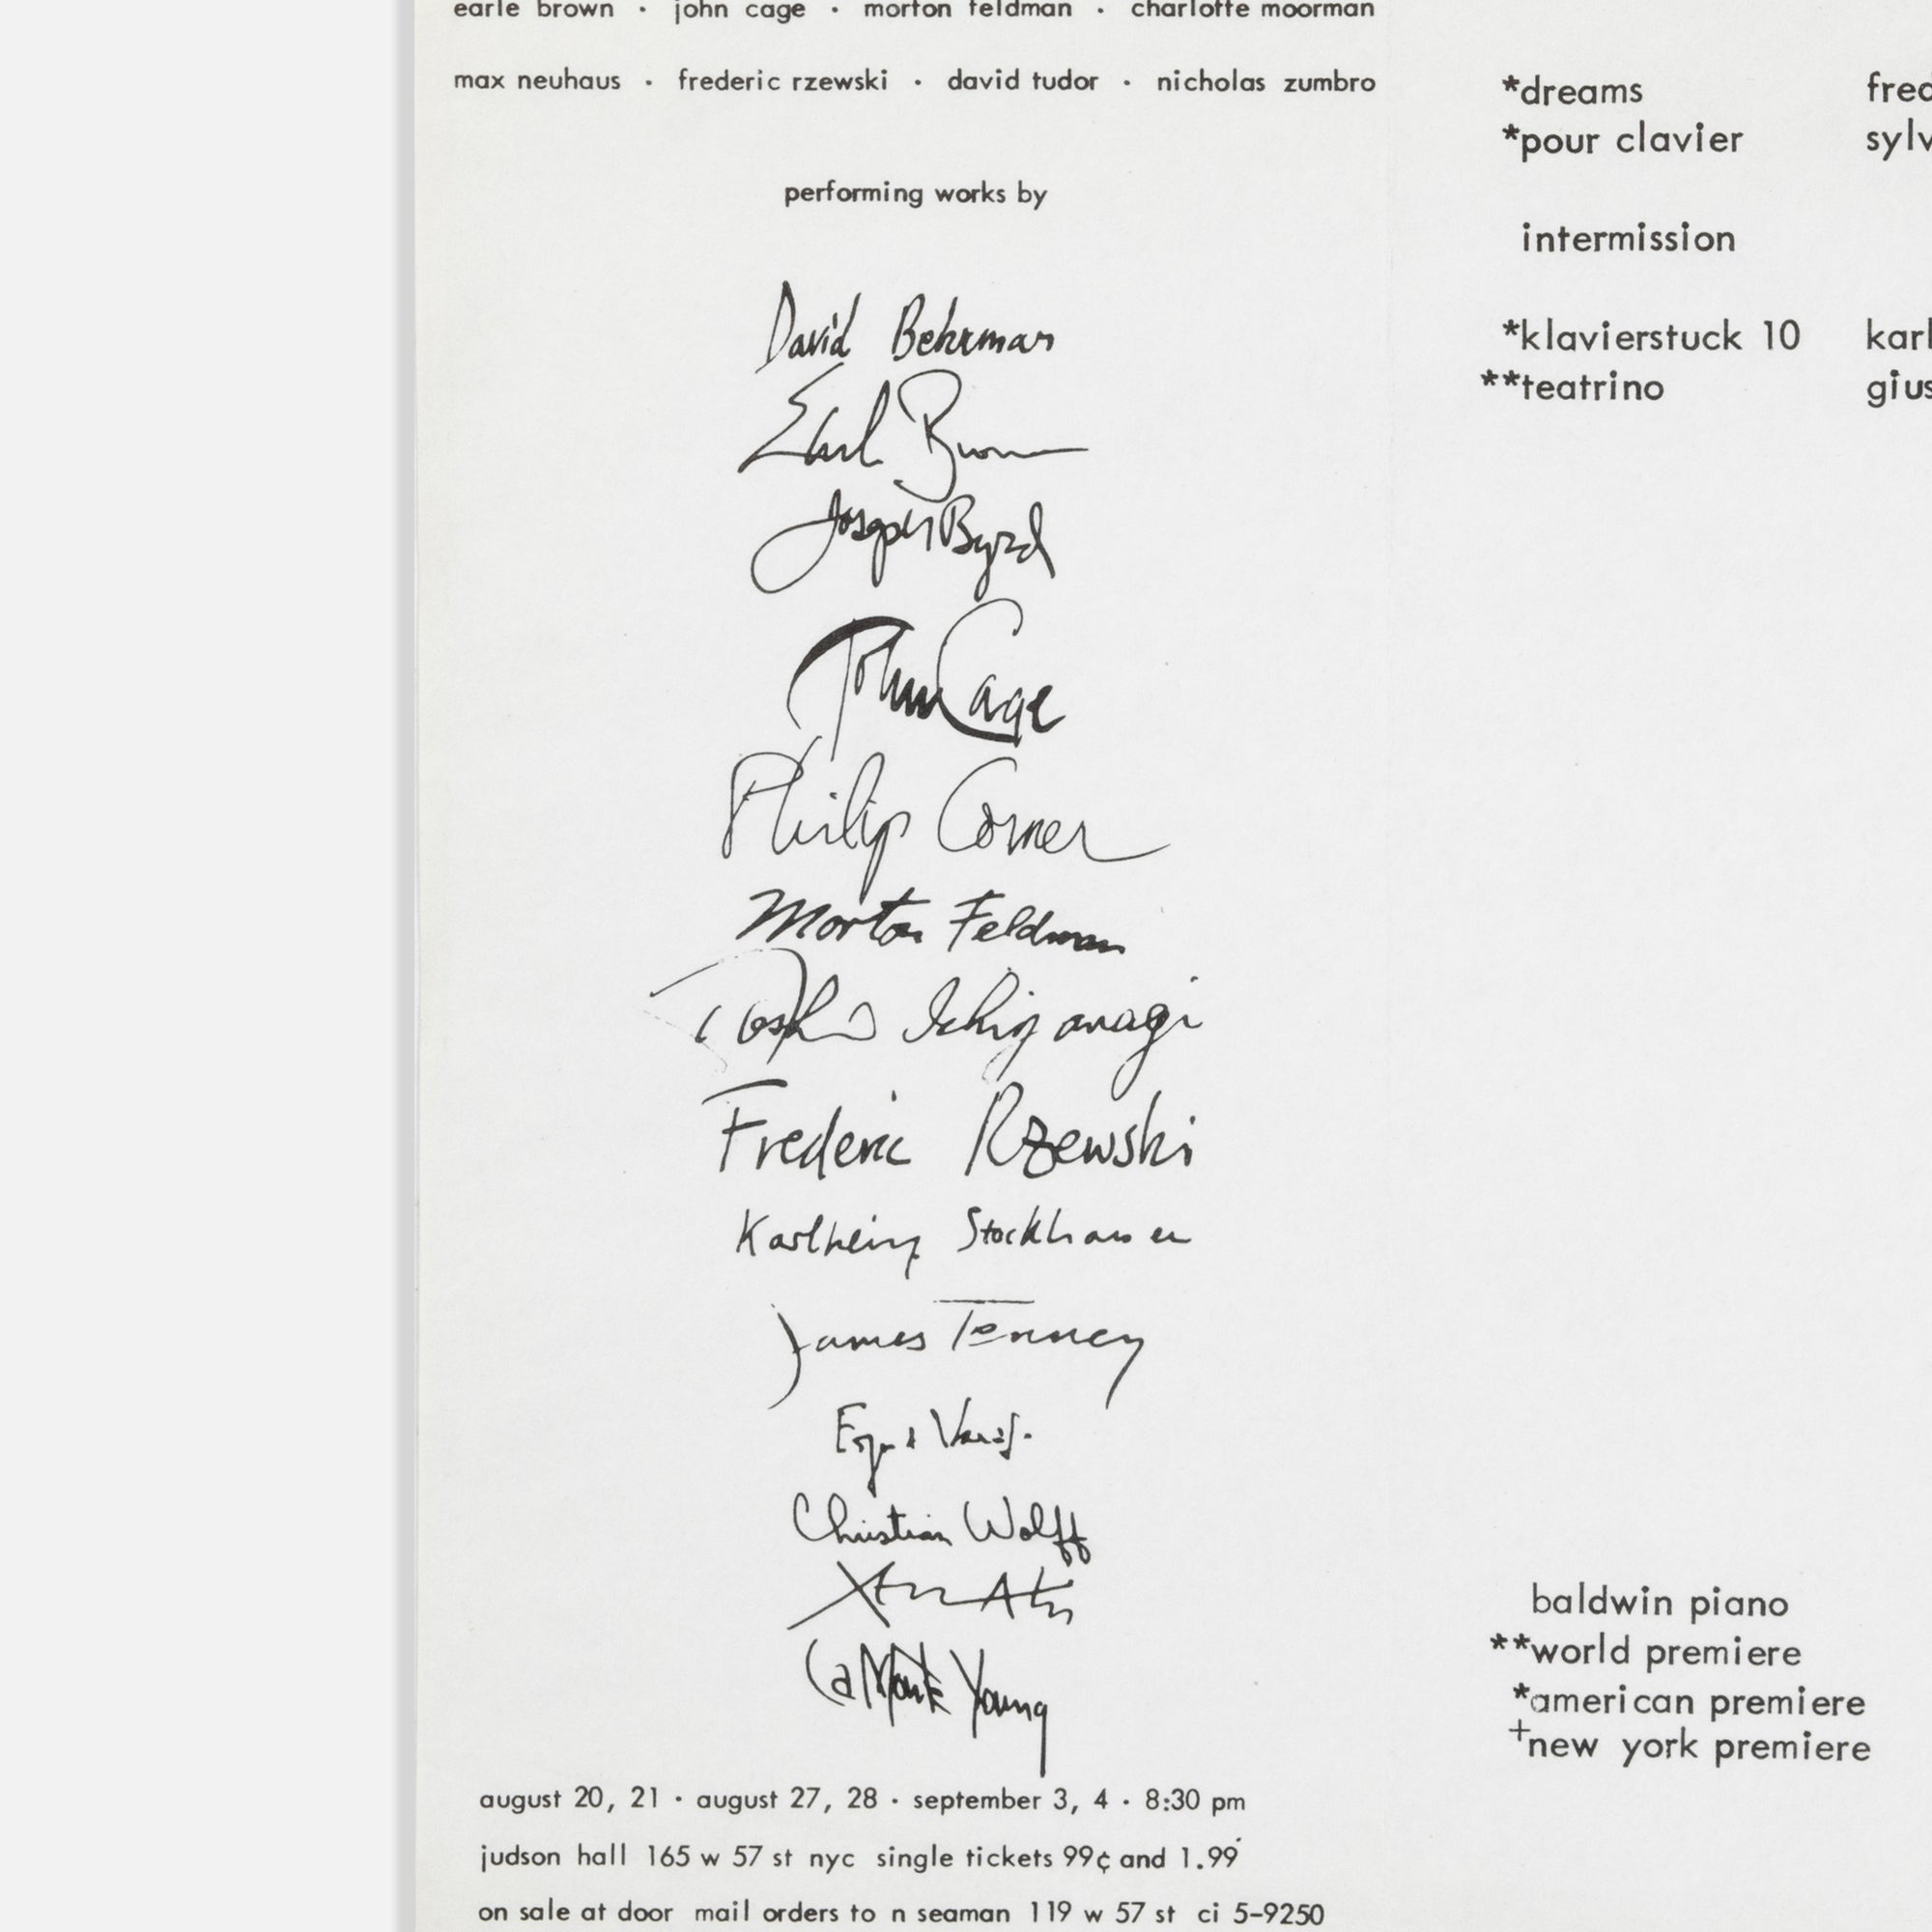 earle brown · john cage · morton feldman · charlotte moorman
max neuhaus · frederic rzewski · david tudor · nicholas zumbro
performing works by
David Behrman
Earle Brown
Joseph Byrd
John Cage
Philip Corner
Morton Feldman
Toshi Ichiyanagi
Frederic Rzewski
Karlheinz Stockhausen
James Tenney
Edgard Varèse
Christian Wolff
La Monte Young
august 20, 21 · august 27, 28 · september 3, 4 · 8:30 pm
judson hall 165 w 57 st nyc single tickets 99¢ and 1.99
on sale at door mail orders to n seaman 119 w 57 st ci 5-9250
*dreams fred
*pour clavier sylv
intermission
*klavierstuck 10 karl
**teatrino gius
baldwin piano
**world premiere
*american premiere
+new york premiere